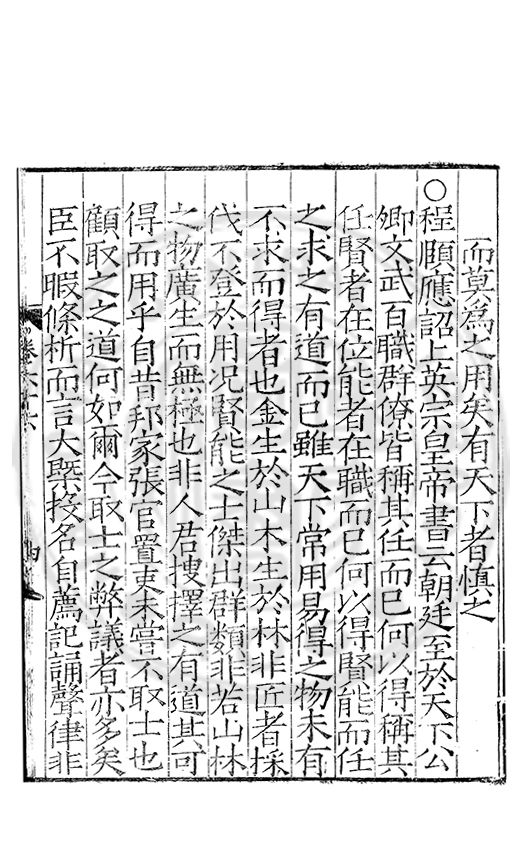 而莫爲之用矣有天下者慎之
○程頤應詔上英宗皇帝書云朝廷至於天下公
卿文武百職群僚皆稱其任而已何以得稱其
任賢者在位能者在職而已何以得賢能而任
之求之有道而已雖天下常用易得之物未有
不求而得者也金生於山木生於林非匠者採
伐不登於用况賢能之士傑出群類非若山林
之物廣生而無極也非人君搜擇之有道其可
得而用乎自昔邦家張官置吏未嘗不取士也
顧取之之道何如爾今取士之弊議者亦多矣
臣不暇條析而言大槩投名自薦記誦聲律非